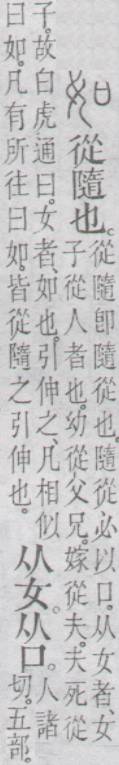 如
從隨也。
從隨卽隨從也。隨從必以口。从女者、女
子從人者也。幼從父兄。嫁從夫。夫死從
子。故白虎通曰。女者、如也。引伸之、凡相似
曰如。凡有所往曰如。皆從隨之引伸也。
从女。从口。
人諸
切。五部。